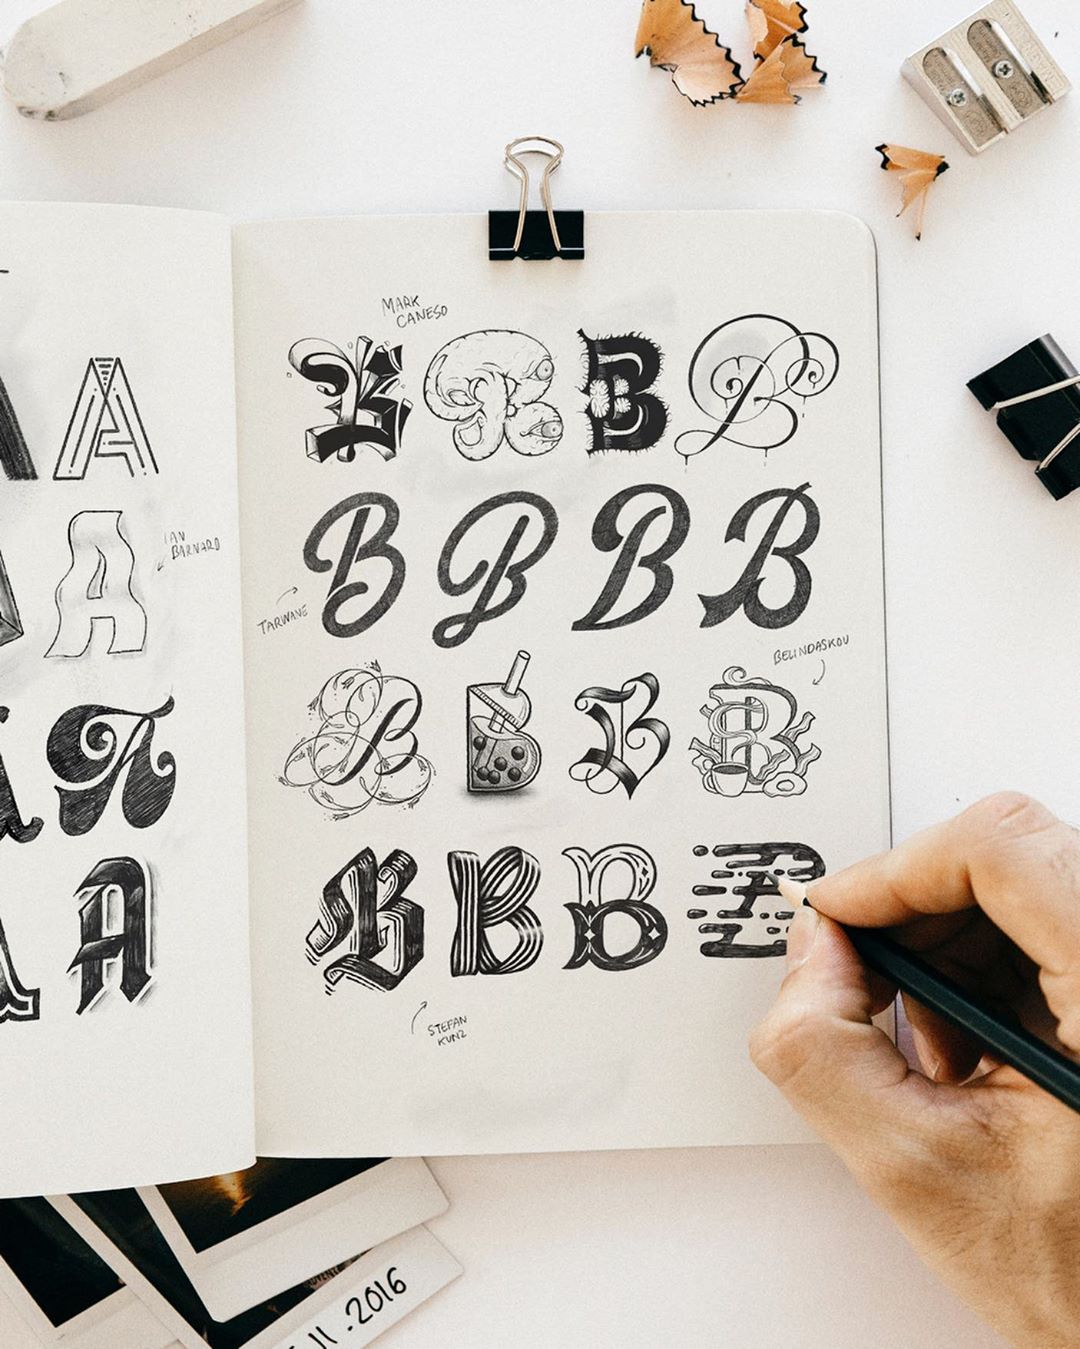 MARK
CANESO
B B B B
A
IAN
BARNARD
A
B B B B
TARWANE
BELINDASKOU
A
B B B B
A
B B B B
STEFAN
KUNZ
11.2016